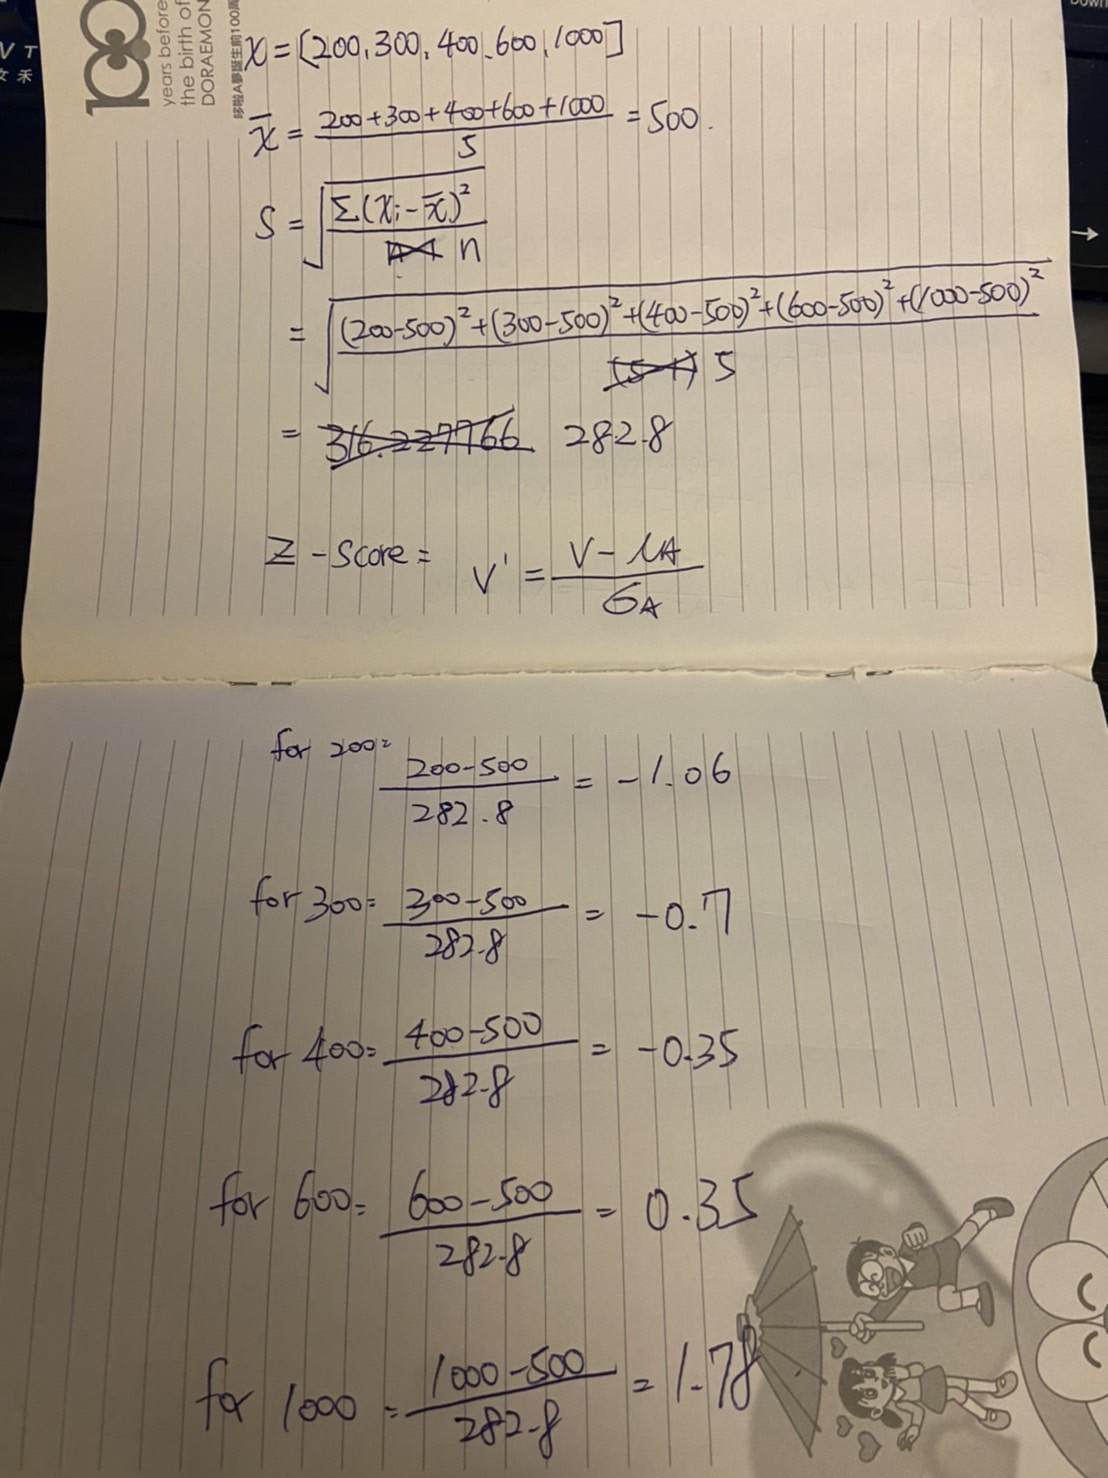 100
years before
the birth of
DORAEMON
哆啦A夢誕生前100周
X = [200, 300, 400, 600, 1000]
x̄ = (200+300+400+600+1000)/5 = 500.
S = √(Σ(xi-x̄)²/n)
= √(((200-500)²+(300-500)²+(400-500)²+(600-500)²+(1000-500)²)/(5-1) 5)
= 316.227766 282.8
Z-score = V' = (V-μA)/σA
for 200 = (200-500)/282.8 = -1.06
for 300 = (300-500)/282.8 = -0.7
for 400 = (400-500)/282.8 = -0.35
for 600 = (600-500)/282.8 = 0.35
for 1000 = (1000-500)/282.8 = 1.78